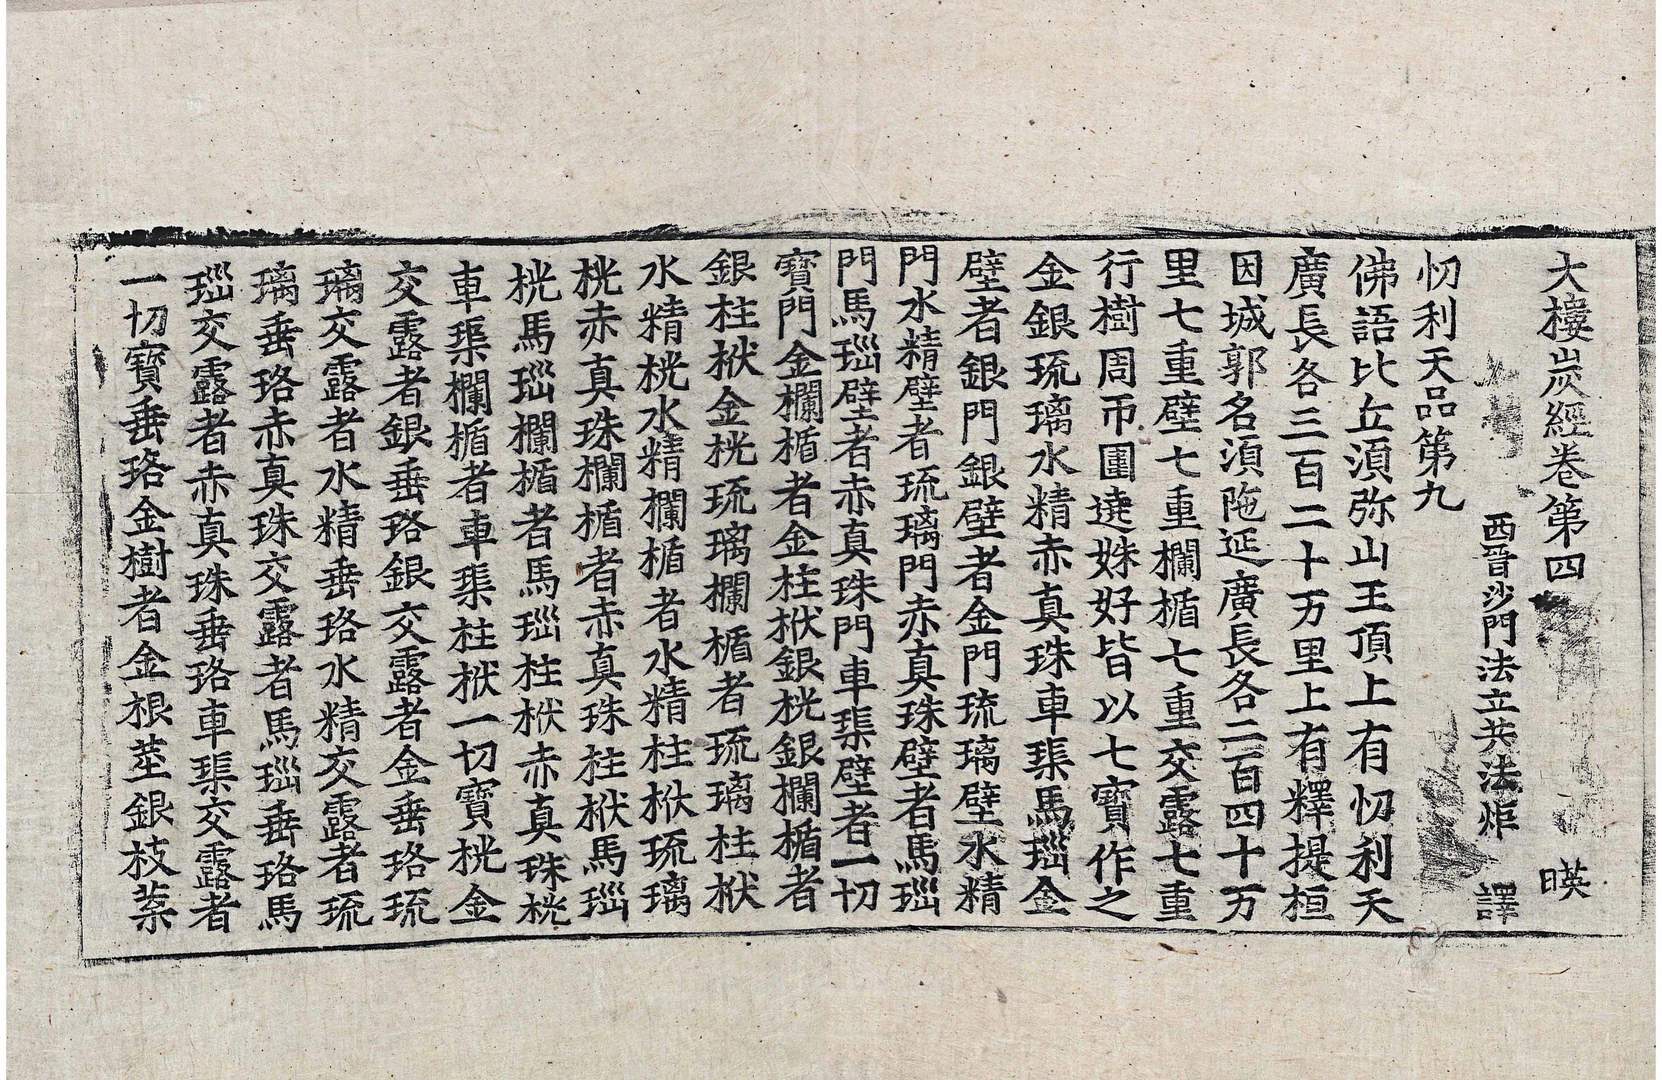 大樓炭經卷第四 暎
西晉沙門法立共法炬 譯
忉利天品第九
佛語比丘須弥山王頂上有忉利天
廣長各三百二十万里上有釋提桓
因城郭名須陁延廣長各二百四十万
里七重壁七重欄楯七重交露七重
行樹周帀圍遶姝好皆以七寶作之
金銀琉璃水精赤真珠車璖馬瑙金
壁者銀門銀壁者金門琉璃壁水精
門水精壁者琉璃門赤真珠壁者馬瑙
門馬瑙壁者赤真珠門車璖壁者一切
寶門金欄楯者金柱栿銀桄銀欄楯者
銀柱栿金桄琉璃欄楯者琉璃柱栿
水精桄水精欄楯者水精柱栿琉璃
桄赤真珠欄楯者赤真珠柱栿馬瑙
桄馬瑙欄楯者馬瑙柱栿赤真珠桄
車璖欄楯者車璖柱栿一切寶桄金
交露者銀垂珞銀交露者金垂珞琉
璃交露者水精垂珞水精交露者琉
璃垂珞赤真珠交露者馬瑙垂珞馬
瑙交露者赤真珠垂珞車璖交露者
一切寶垂珞金樹者金根莖銀枝葉